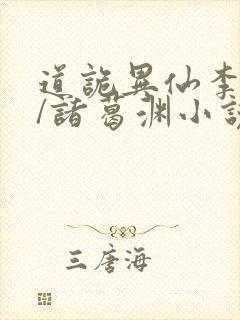 道詭異仙李
/諸葛渊小說
三唐海